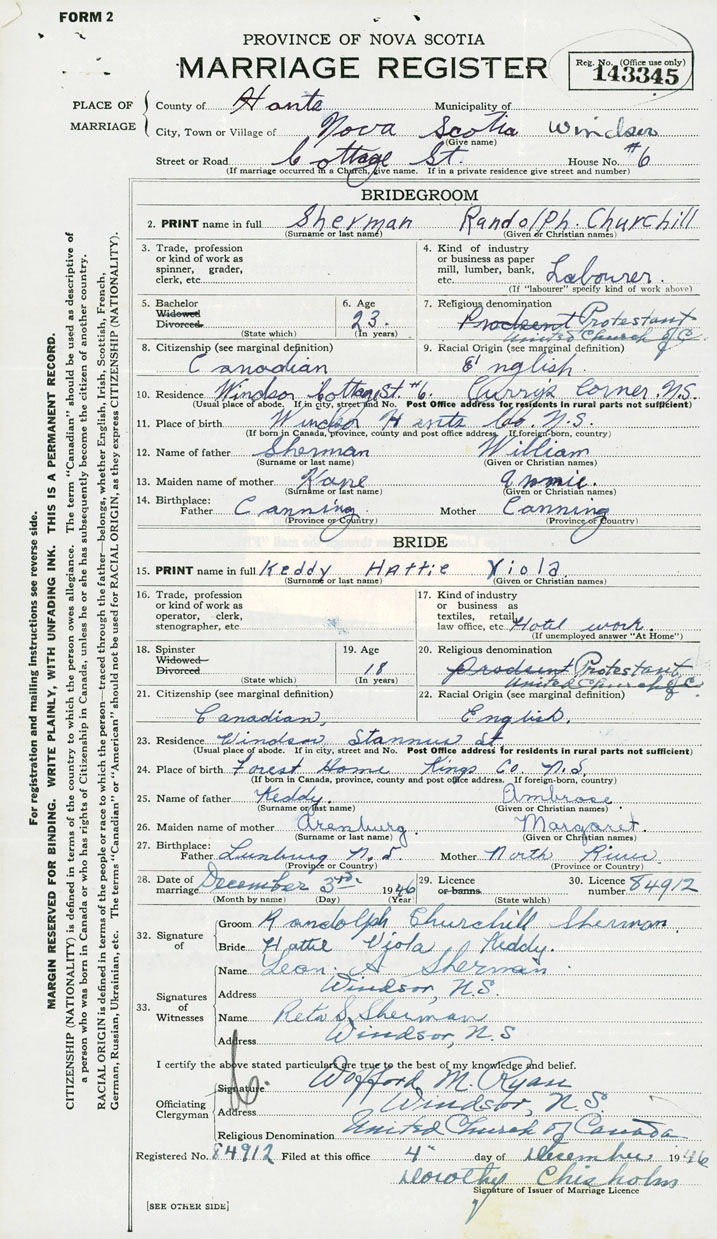 FORM 2
PROVINCE OF NOVA SCOTIA
MARRIAGE REGISTER
Reg. No. (Office use only)
143345
PLACE OF MARRIAGE
County of Hants Municipality of
City, Town or Village of Nova Scotia Windsor
(Give name)
Street or Road Cottage St. House No. #6
(If marriage occurred in a Church, give name. If in a private residence give street and number)
BRIDEGROOM
2. PRINT name in full Sherman Randolph. Churchill
(Surname or last name) (Given or Christian names)
3. Trade, profession or kind of work as spinner, grader, clerk, etc.
4. Kind of industry or business as paper mill, lumber, bank, etc. Labourer.
(If "labourer" specify kind of work above)
5. Bachelor Widowed Divorced
(State which)
6. Age 23.
(In years)
7. Religious denomination
Protestant
United Church of C.
8. Citizenship (see marginal definition)
Canadian
9. Racial Origin (see marginal definition)
English.
10. Residence Windsor Cottage St. #6. Curry's Corner N.S.
(Usual place of abode. If in city, street and No. Post Office address for residents in rural parts not sufficient)
11. Place of birth Windsor Hants Co. N.S.
(If born in Canada, province, county and post office address. If foreign-born, country)
12. Name of father Sherman William
(Surname or last name) (Given or Christian names)
13. Maiden name of mother Annie.
(Surname or last name) (Given or Christian names)
14. Birthplace:
Father Canning. Mother Canning
(Province or Country) (Province or Country)
BRIDE
15. PRINT name in full Keddy Hattie Viola
(Surname or last name) (Given or Christian names)
16. Trade, profession or kind of work as operator, clerk, stenographer, etc.
17. Kind of industry or business as textiles, retail, law office, etc. Hotel work.
(If unemployed answer "At Home")
18. Spinster Widowed Divorced
(State which)
19. Age 18
(In years)
20. Religious denomination
Protestant
United Church of C.
21. Citizenship (see marginal definition)
Canadian,
22. Racial Origin (see marginal definition)
English.
23. Residence Windsor Stannus St
(Usual place of abode. If in city, street and No. Post Office address for residents in rural parts not sufficient)
24. Place of birth Forest Home Kings Co. N.S.
(If born in Canada, province, county and post office address. If foreign-born, country)
25. Name of father Keddy. Ambrose.
(Surname or last name) (Given or Christian names)
26. Maiden name of mother Arenburg. Margaret.
(Surname or last name) (Given or Christian names)
27. Birthplace:
Father Lunburg N.S. Mother North River
(Province or Country) (Province or Country)
28. Date of marriage December 3rd 1946
(Month by name) (Day) (Year)
29. Licence or banns
(State which)
30. Licence number 84912
32. Signature of
Groom Randolph Churchill Sherman
Bride Hattie Viola Keddy.
33. Signatures of Witnesses
Name Leon A Sherman
Address Windsor, N.S.
Name Reta S Sherman
Address Windsor, N.S
I certify the above stated particulars are true to the best of my knowledge and belief.
Officiating Clergyman
Signature M. Ryan
Address Windsor, N.S.
Religious Denomination United Church of Canada
Registered No. 84912 Filed at this office 4" day of December 1946
Dorothy Chisholm
Signature of Issuer of Marriage Licence
[SEE OTHER SIDE]
For registration and mailing instructions see reverse side.
MARGIN RESERVED FOR BINDING. WRITE PLAINLY, WITH UNFADING INK. THIS IS A PERMANENT RECORD.
CITIZENSHIP (NATIONALITY) is defined in terms of the country to which the person owes allegiance. The term "Canadian" should be used as descriptive of
a person who was born in Canada or who has rights of Citizenship in Canada, unless he or she has subsequently become the citizen of another country.
RACIAL ORIGIN is defined in terms of the people or race to which the person—traced through the father—belongs, whether English, Irish, Scottish, French,
German, Russian, Ukrainian, etc. The terms "Canadian" or "American" should not be used for RACIAL ORIGIN, as they express CITIZENSHIP (NATIONALITY).